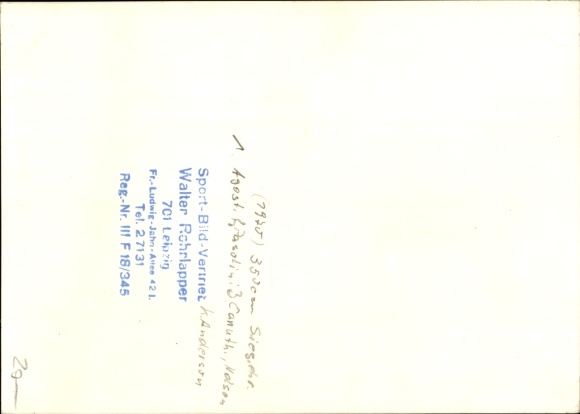 (1970) 350ccm Siegerehr.
1. Agostini, 2. Pasolini; 3 Canuth, Nelson
K. Anderson
Sport-Bild-Vertrieb
Walter Rohrlapper
701 Leipzig
Fr.-Ludwig-Jahn-Allee 42 I.
Tel. 27131
Reg.-Nr. III F 18/345